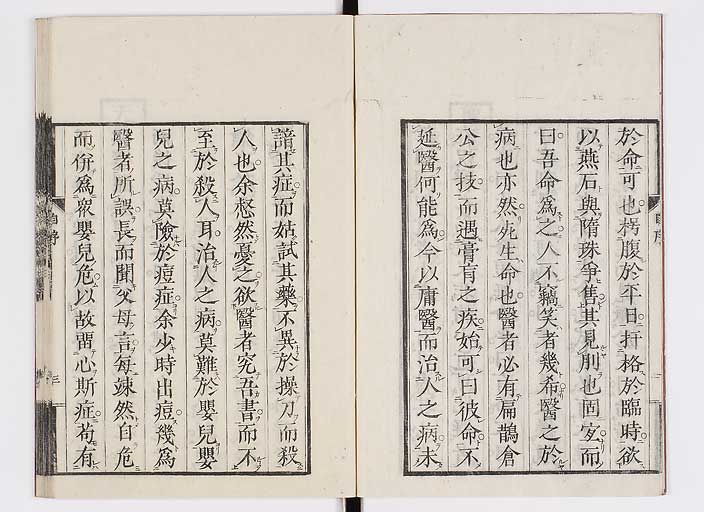 於命可也枵腹於平日扞格於臨時欲
以燕石與隋珠爭售其見刖也固宐而
曰吾命爲之人不竊笑者幾希醫之於
病也亦然死生命也醫者必有扁鵲倉
公之技而遇膏肓之疾始可曰彼命不
延醫何能爲今以庸醫而治人之病未
諳其症而姑試其藥不異於操刀而殺
人也余愁然憂之欲醫者究吾書而不
至於殺人耳治人之病莫難於嬰兒嬰
兒之病莫險於痘症余少時出痘幾爲
醫者所誤長而聞父母言每竦然自危
而併爲衆嬰兒危以故畱心斯症苟有
自序
三